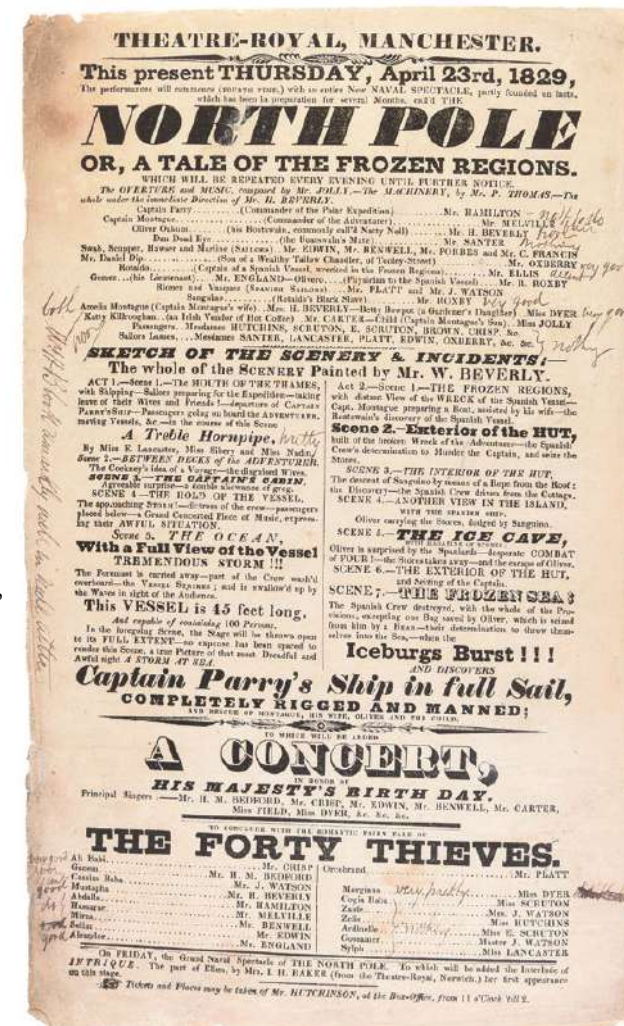 THEATRE-ROYAL, MANCHESTER.
This present THURSDAY, April 23rd, 1829,
The performances will commence (FOURTH TIME,) with an entire New NAVAL SPECTACLE, partly founded on facts,
which has been in preparation for several Months, call'd THE
NORTH POLE
OR, A TALE OF THE FROZEN REGIONS.
WHICH WILL BE REPEATED EVERY EVENING UNTIL FURTHER NOTICE.
The OVERTURE and MUSIC, composed by Mr. JOLLY.—The MACHINERY, by Mr. P. THOMAS,—The
whole under the immediate Direction of Mr. H. BEVERLY.
Captain Parry..........(Commander of the Polar Expedition)..........Mr. HAMILTON
Captain Montague..........(Commander of the Adventurer)..........Mr. MELVILLE
Oliver Oakum..........(his Boatswain, commonly call'd Natty Noll)..........Mr. H. BEVERLY
Dun Dead Eye..........(the Boatswain's Mate)..........Mr. SANTER nothing
Swab, Scupper, Hawser and Marline (SAILORS) Mr. EDWIN, Mr. BENWELL, Mr. FORBES and Mr. C. FRANCIS
Mr. Daniel Dip..........(Son of a Wealthy Tallow Chandler, of Tooley-Street)..........Mr. OXBERRY very good
Rotaldo..........(Captain of a Spanish Vessel, wrecked in the Frozen Regions)..........Mr. ELLIS decent
Gomez...(his Lieutenant) Mr. ENGLAND—Olivero....(Physician to the Spanish Vessel)....Mr. R. ROXBY
Riones and Vasquez (SPANISH SAILORS) Mr. PLATT and Mr. J. WATSON
Sanguino..........(Rotaldo's Black Slave)..........Mr. ROXBY very good
Amelia Montague (Captain Montague's wife)..Mrs. H. BEVERLY—Betty Bowpot (a Gardener's Daughter)..Miss DYER very good
Katty Killroughan..(an Irish Vender of Hot Coffee) Mr. CARTER—Child (Captain Montague's Son)..Miss JOLLY
Passengers..Mesdames HUTCHINS, SCRUTON, E. SCRUTON, BROWN, CRISP, &c.
Sailors Lasses....Mesdames SANTER, LANCASTER, PLATT, EDWIN, OXBERRY, &c. &c. nothing
SKETCH OF THE SCENERY & INCIDENTS;—
The whole of the SCENERY Painted by Mr. W. BEVERLY.
ACT 1.—Scene 1.—The MOUTH OF THE THAMES,
with Shipping—Sailors preparing for the Expedition—taking
leave of their Wives and Friends!—departure of CAPTAIN
PARRY'S SHIP—Passengers going on board the ADVENTURER,
moving Vessels, &c.—in the course of this Scene
A Treble Hornpipe, pretty
By Miss E. Lancaster, Miss Sibery and Miss Nadin.
Scene 2.—BETWEEN DECKS of the ADVENTURER.
The Cockney's idea of a Voyage—the disguised Wives.
SCENE 3.—THE CAPTAIN'S CABIN.
Agreeable surprise—a double allowance of grog.
SCENE 4—THE HOLD OF THE VESSEL.
The approaching STORM!—distress of the crew—passengers
placed below—a Grand Concerted Piece of Music, express-
ing their AWFUL SITUATION.
Scene 5. THE OCEAN,
With a Full View of the Vessel
TREMENDOUS STORM !!!
The Foremast is carried away—part of the Crew wash'd
overboard—the VESSEL STRIKES; and is swallow'd up by
the Waves in sight of the Audience.
This VESSEL is 45 feet long,
And capable of containing 100 Persons.
In the foregoing Scene, the Stage will be thrown open
to its FULL EXTENT—no expense has been spared to
render this Scene, a true Picture of that most Dreadful and
Awful sight A STORM AT SEA.
Act 2.—Scene 1.—THE FROZEN REGIONS,
with distant View of the WRECK of the Spanish Vessel—
Capt. Montague preparing a Boat, assisted by his wife—the
Boatswain's discovery of the Spanish Vessel.
Scene 2.—Exterior of the HUT,
built of the broken Wreck of the Adventurer—the Spanish
Crew's determination to Murder the Captain, and seize the
Stores.
SCENE 3.—THE INTERIOR OF THE HUT,
The descent of Sanguino by means of a Rope from the Roof;
the Discovery—the Spanish Crew driven from the Cottage.
SCENE 4.—ANOTHER VIEW IN THE ISLAND,
WITH THE SPANISH SHIP,
Oliver carrying the Stores, dodged by Sanguino.
SCENE 5.—THE ICE CAVE,
Oliver is surprised by the Spaniards—desperate COMBAT
of FOUR!—the Stores taken away—and the escape of Oliver.
SCENE 6.—THE EXTERIOR OF THE HUT,
and Seizing of the Captain.
SCENE 7.—THE FROZEN SEA;
The Spanish Crew destroyed, with the whole of the Pro-
visions, excepting one Bag saved by Oliver, which is seized
from him by a BEAR—their determination to throw them-
selves into the Sea,—when the
Iceburgs Burst ! ! !
AND DISCOVERS
Captain Parry's Ship in full Sail,
COMPLETELY RIGGED AND MANNED;
AND RESCUE OF MONTAGUE, HIS WIFE, OLIVER AND THE CHILD.
TO WHICH WILL BE ADDED
A CONCERT,
IN HONOR OF
HIS MAJESTY'S BIRTH DAY.
Principal Singers:—Mr. H. M. BEDFORD, Mr. CRISP, Mr. EDWIN, Mr. BENWELL, Mr. CARTER,
Miss FIELD, Miss DYER, &c. &c. &c.
TO CONCLUDE WITH THE ROMANTIC FAIRY TALE OF
THE FORTY THIEVES.
Ali Baba..........Mr. CRISP
Ganem..........Mr. H. M. BEDFORD
Cassim Baba..........Mr. J. WATSON
Mustapha..........Mr. H. BEVERLY
Abdalla..........Mr. HAMILTON
Hassarac..........Mr. MELVILLE
Mirza..........Mr. BENWELL
Selim..........Mr. EDWIN
Alcanzor..........Mr. ENGLAND
Orcobrand..........Mr. PLATT
Morgiana very pretty..........Miss DYER
Cogia Baba..........Miss SCRUTON
Zaide..........Mrs. J. WATSON
Zelie..........Miss HUTCHINS
Ardinelle..........Miss E. SCRUTON
Gossamer..........Master J. WATSON
Sylph..........Miss LANCASTER
On FRIDAY, the Grand Naval Spectacle of THE NORTH POLE. To which will be added the Interlude of
INTRIGUE. The part of Ellen, by Mrs. I. H. BAKER (from the Theatre-Royal, Norwich,) her first appearance
on this stage.
Tickets and Places may be taken of Mr. HUTCHINSON, at the Box-Office, from 11 o'Clock 'till 2.